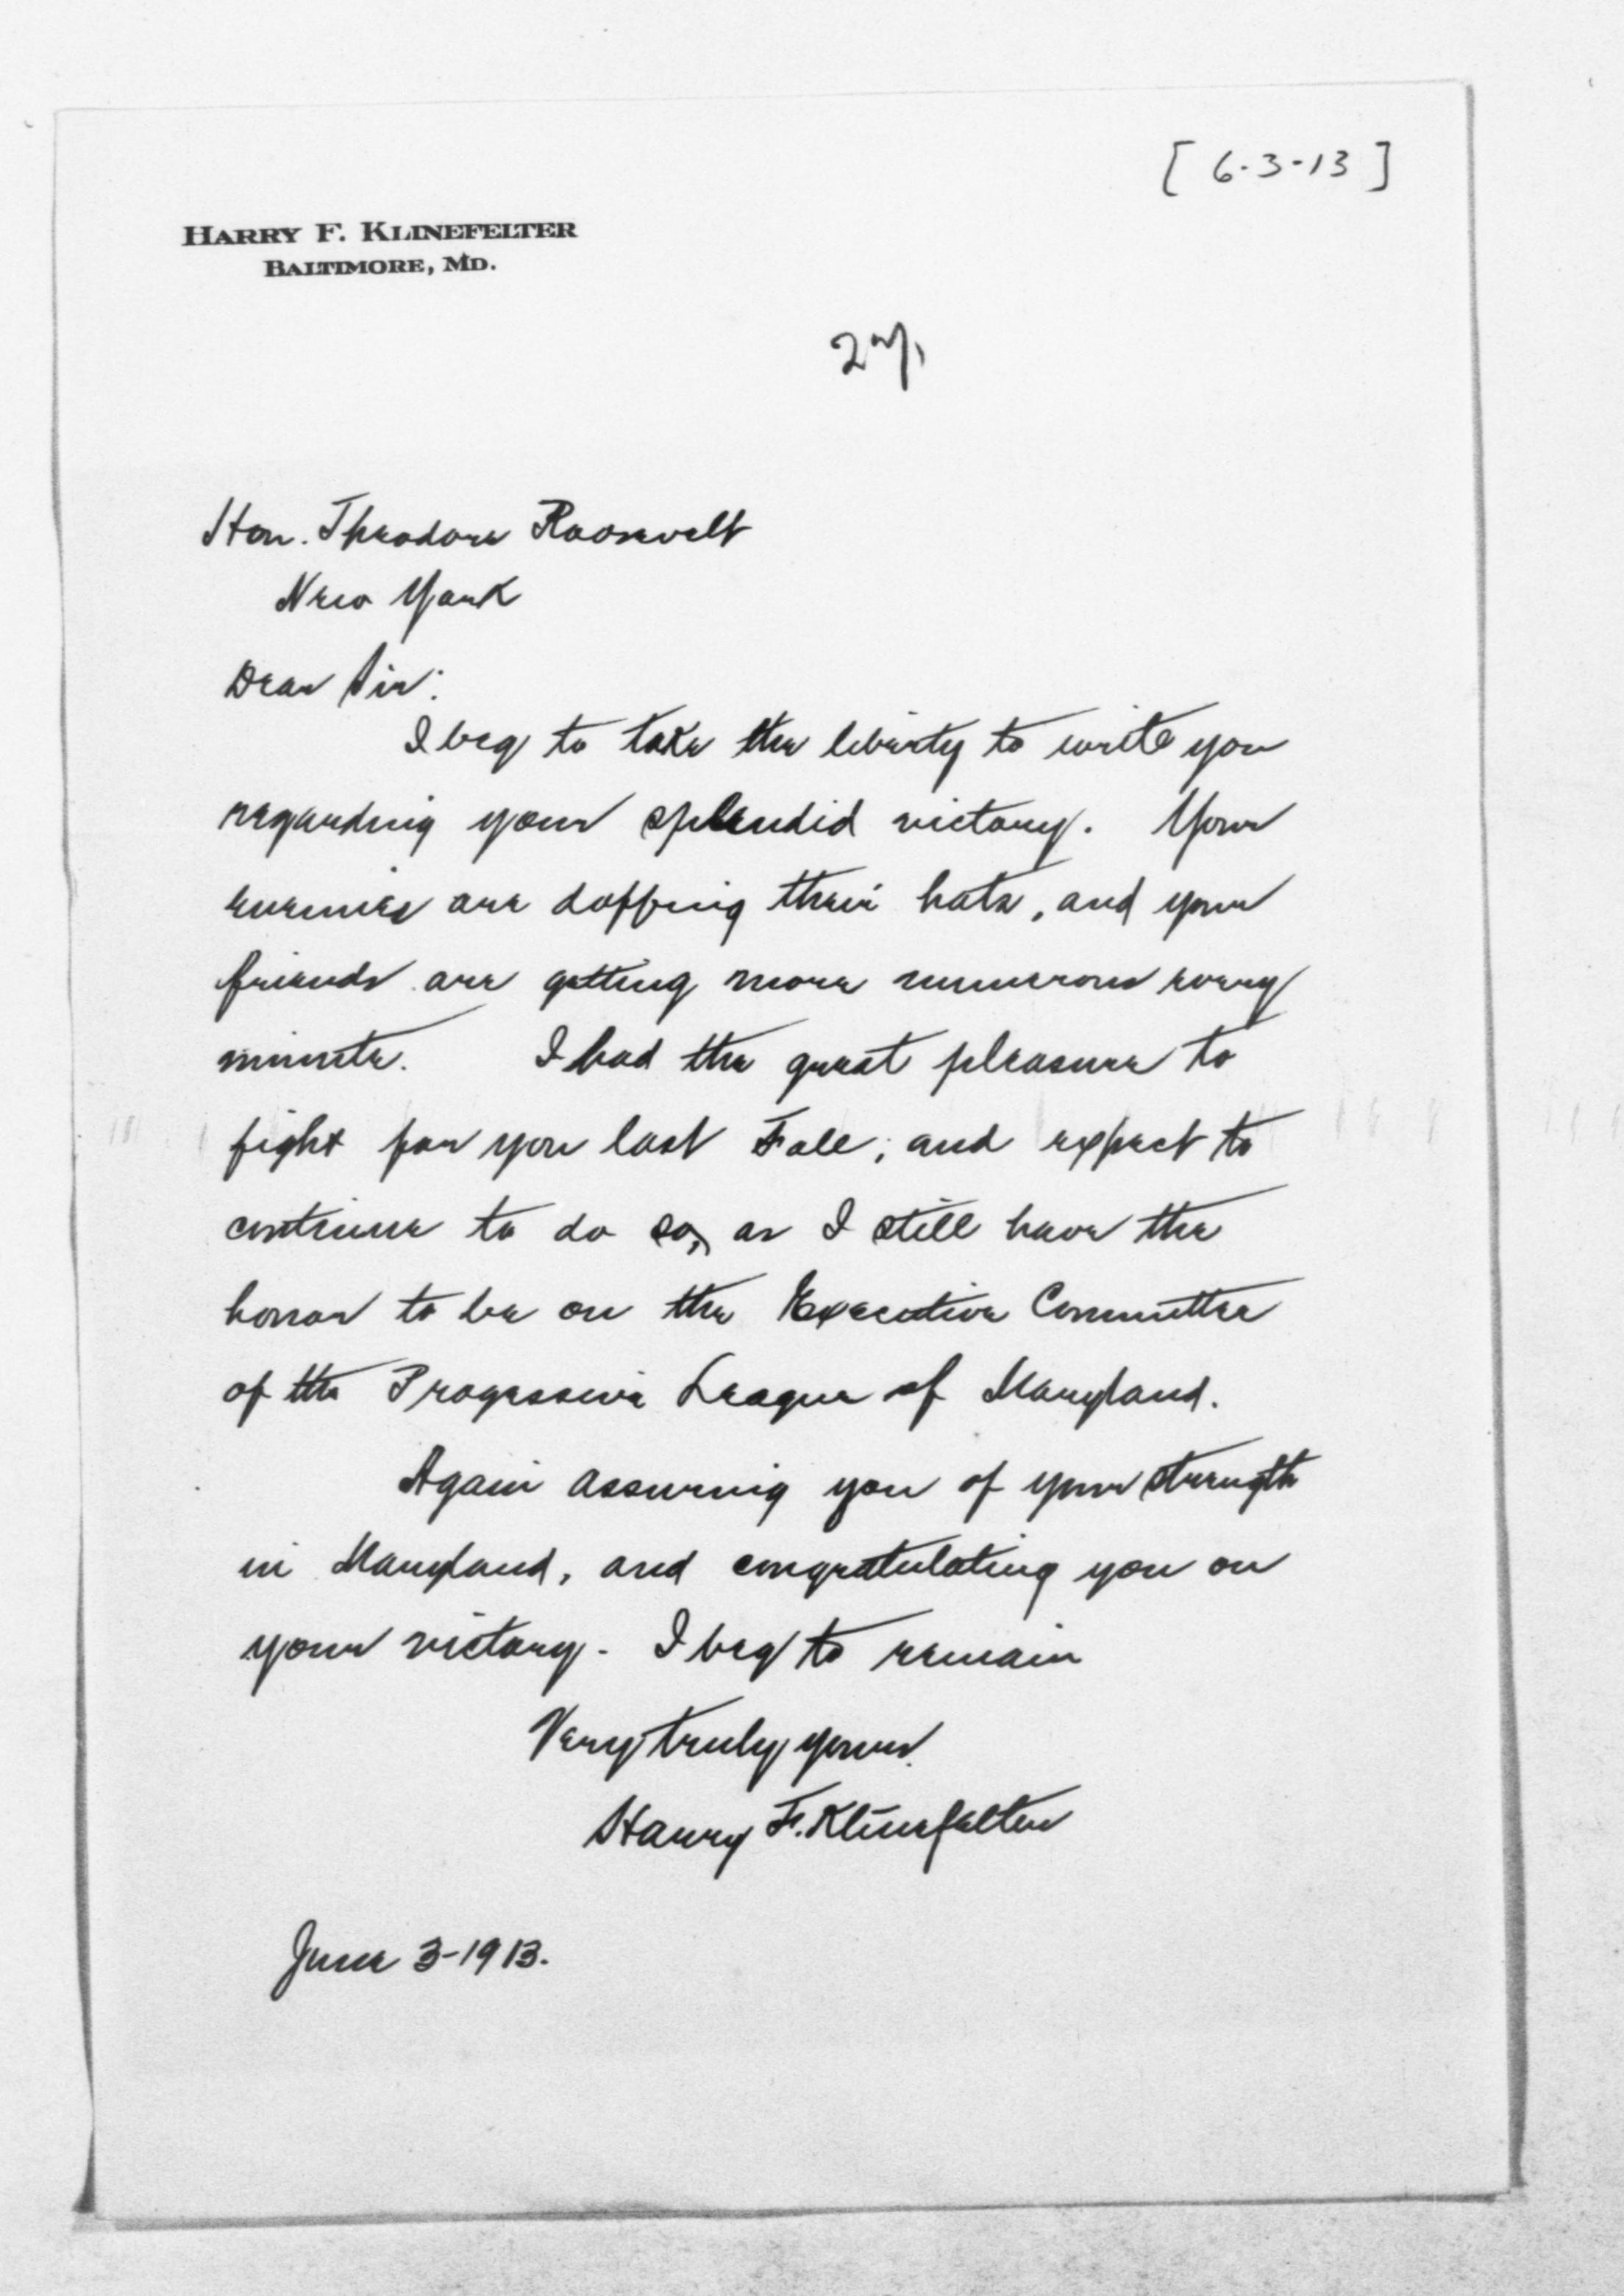 [ 6-3-13 ]
HARRY F. KLINEFELTER
BALTIMORE, MD.
Hon. Theodore Roosevelt
New York
Dear Sir:
I beg to take the liberty to write you
regarding your splendid victory. Your
enemies are doffing their hats, and your
friends are getting more numerous every
minute. I had the great pleasure to
fight for you last Fall, and expect to
continue to do so, as I still have the
honor to be on the Executive Committee
of the Progessive League of Maryland.
Again assuring you of your strength
in Maryland, and congratulating you on
your victory - I beg to remain
Very truly yours.
Harry F. Klinefelter
June 3-1913.